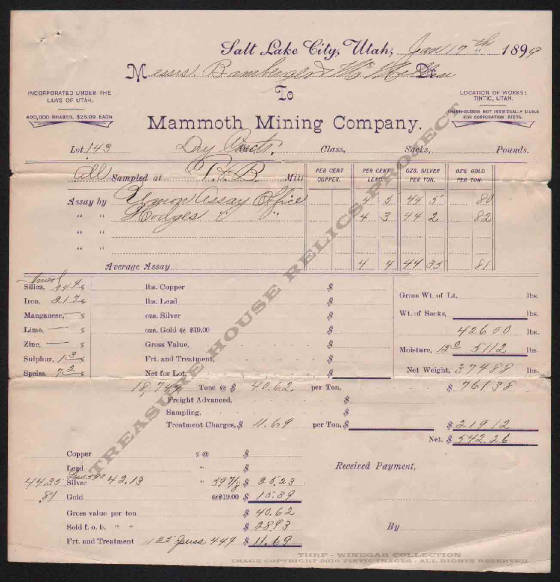 Salt Lake City, Utah, Jan 17th 1899
Messrs. Bamberger & Mc Dr.
To
INCORPORATED UNDER THE
LAWS OF UTAH.
400,000 SHARES, $25.00 EACH
LOCATION OF WORKS:
TINTIC, UTAH.
STOCKHOLDERS NOT INDIVIDUALLY LIABLE
FOR CORPORATION DEBTS.
Mammoth Mining Company.
Lot 143 Dry Class, Sacks, Pounds.
Sampled at P & B Mill
PER CENT COPPER. PER CENT LEAD OZS. SILVER PER TON. OZS GOLD PER TON.
Assay by Union Assay Office 4 5 44 5 80
" " Hodges " 4 3 44 2 82
" "
Average Assay 4 4 44 35 81
Silica, lbs. Copper $
Iron, 21.7 lbs. Lead $
Manganese, ozs. Silver $
Lime, ozs. Gold @ $19.00 $
Zinc, Gross Value, $
Sulphur, 1.3 Frt. and Treatment, $
Speiss, 7.3 Net for Lot, $
Gross Wt. of Lt, lbs.
Wt. of Sacks, lbs.
42600 lbs.
Moisture, 12.0 5112 lbs.
Net Weight, 37488 lbs.
18,744 Tons @ $ 40.62 per Ton. $ 761.38
Freight Advanced, $
Sampling, $
Treatment Charges, $ 11.69 per Ton. $ 219.12
Net, $ 542.26
Copper s @ $
Lead " $
44 35 Silver 42.13 " 59 7/8 $ 25.23
81 Gold @$19.00 $ 15.39
Gross value per ton $ 40.62
Sold f. o. b. " " $ 28.93
Frt. and Treatment $ 11.69
Received Payment,
By
TREASURE HOUSE RELICS PROJECT
THRP - WINEGAR COLLECTION
IMAGE COPYRIGHT 2010 PICTICTRADES - ALL RIGHTS RESERVED